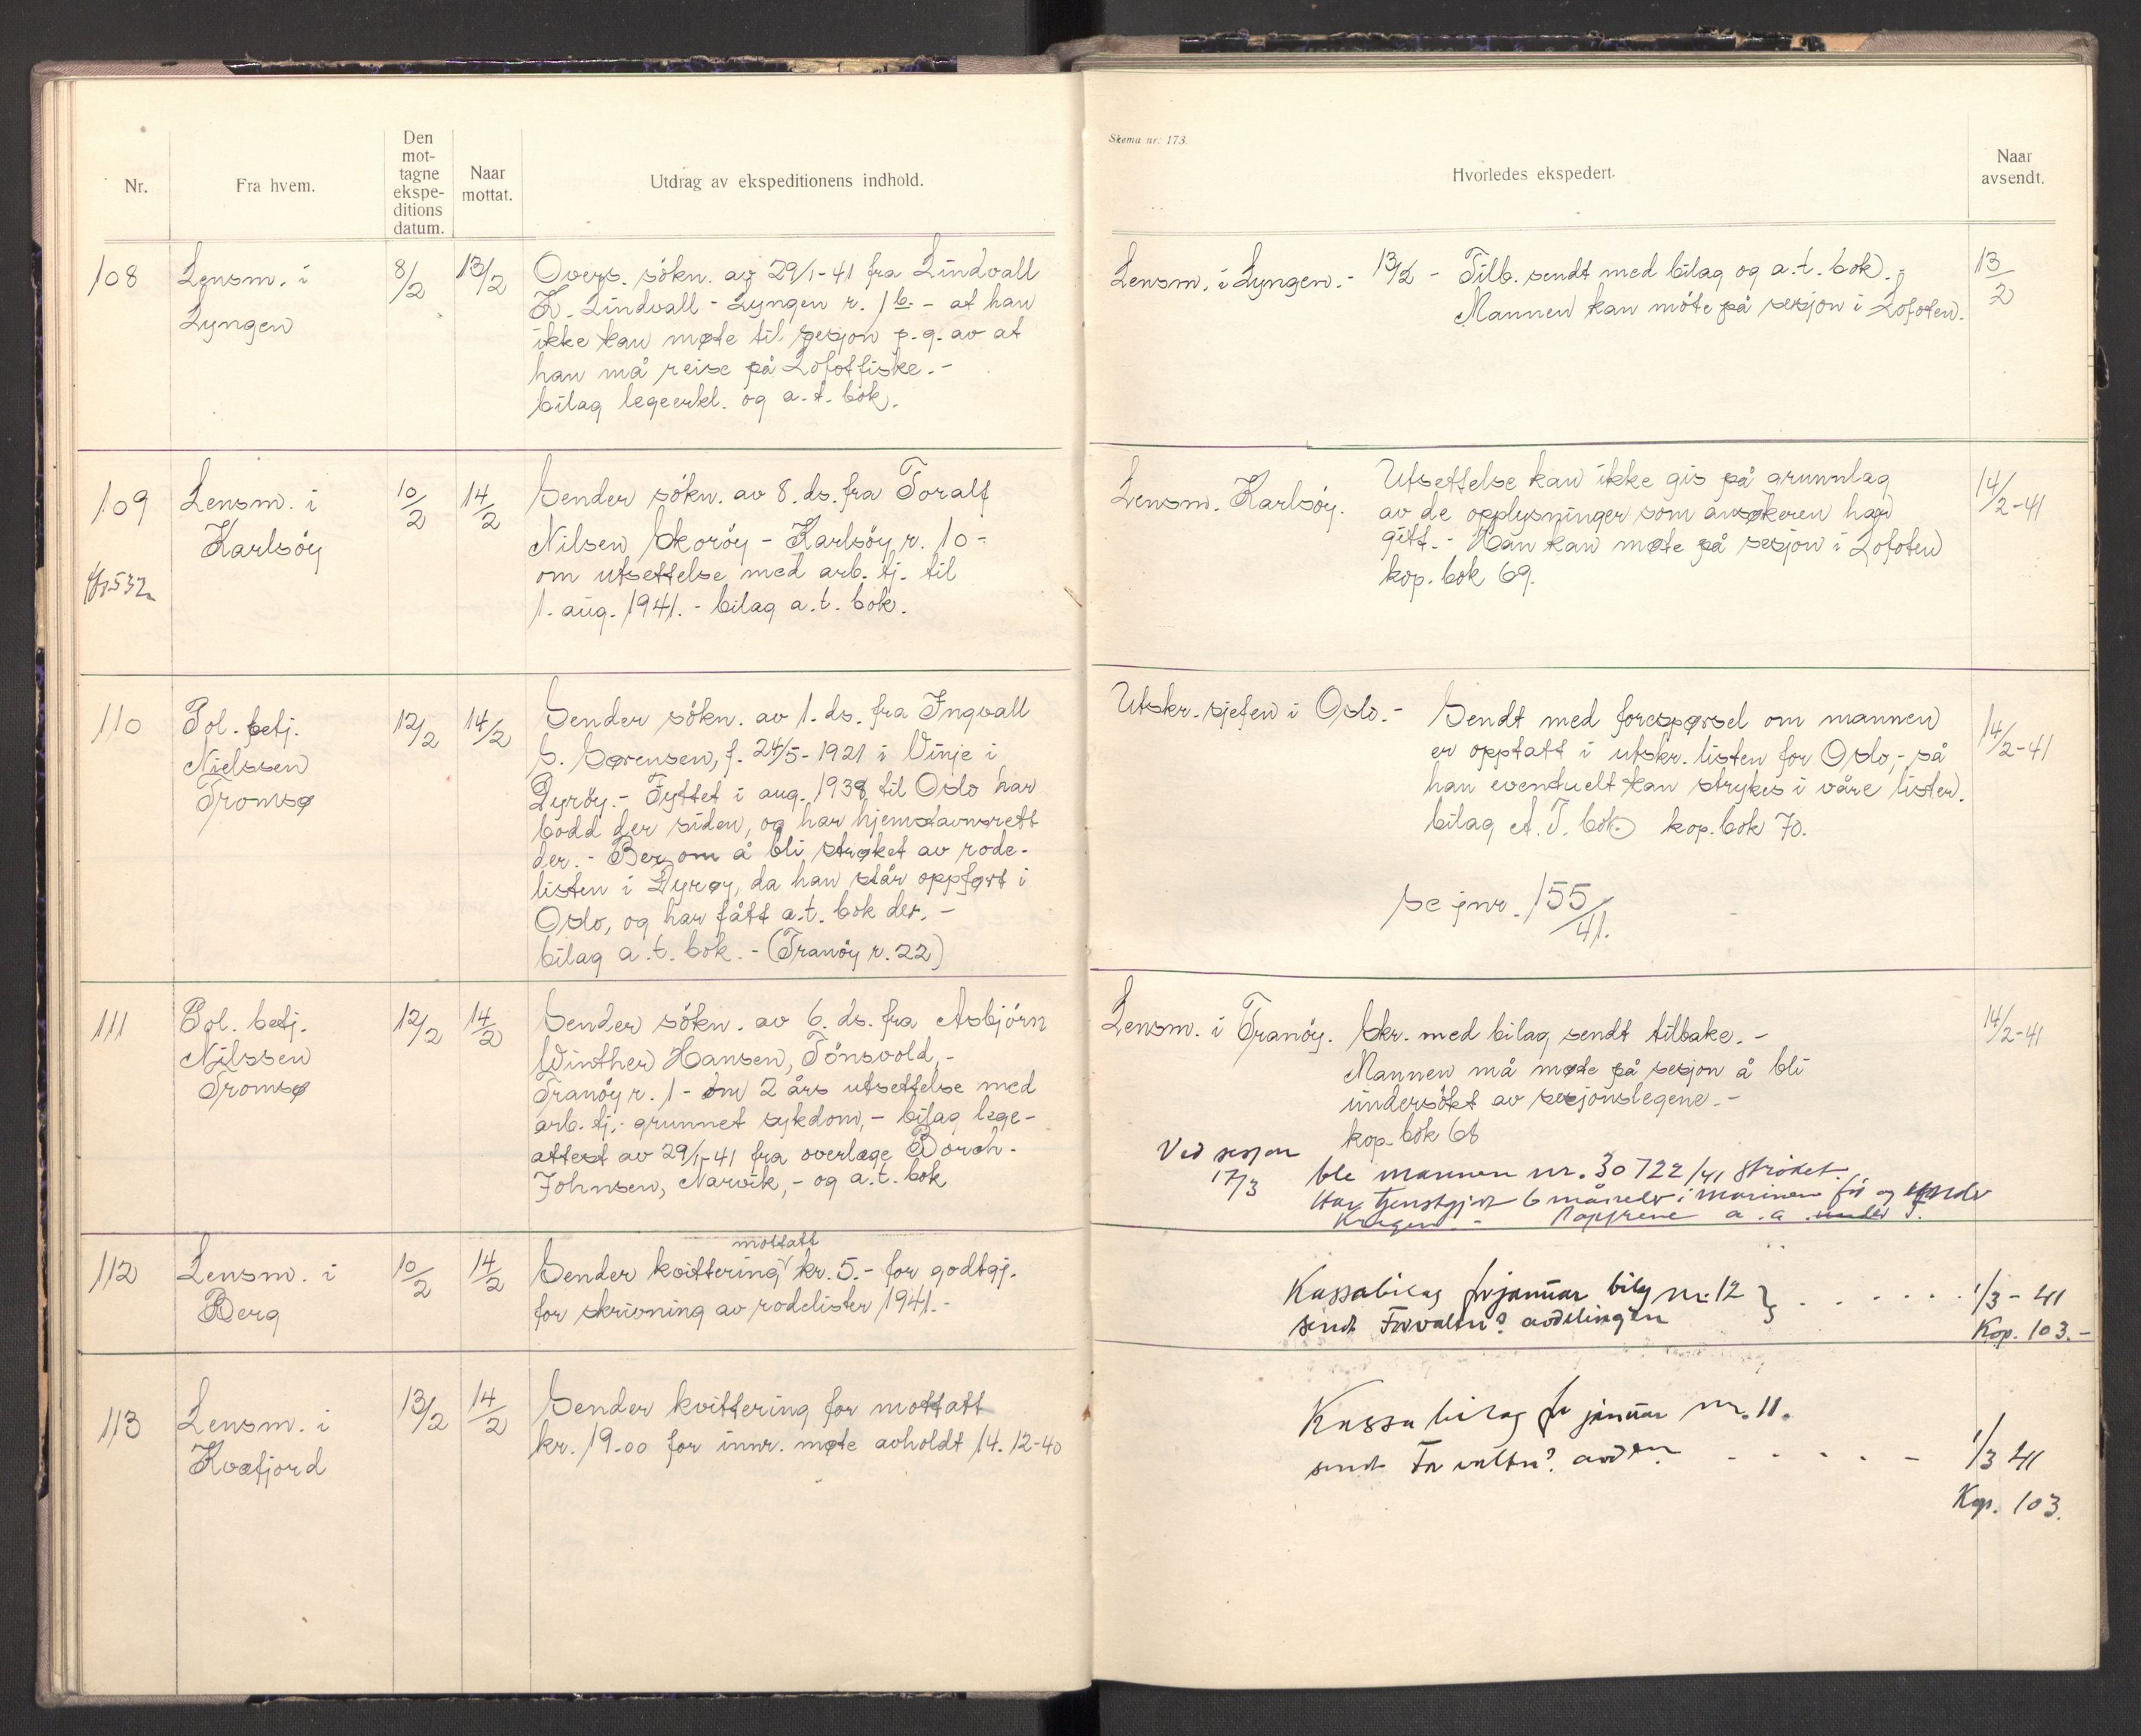 Nr.
Fra hvem.
Den
mot-
tagne
ekspe-
ditions
datum.
Naar
mottat.
Utdrag av ekspeditionens indhold.
Skema nr. 173.
Hvorledes ekspedert.
Naar
avsendt.
108
Lensm. i
Lyngen
8/2
13/2
Overs. søkn. av 29/1-41 fra Lindvall
K. Lindvall - Lyngen r. 1b. - at han
ikke kan møte til sesjon p.g. av at
han må reise på Lofotfiske. -
bilag legeerkl. og a.t. bok.
Lensm. i Lyngen. - 13/2 - Tilb. sendt med bilag og a.t. bok. -
Mannen kan möte på sesjon i Lofoten.
13/2
109
Lensm. i
Karlsöy
532
10/2
14/2
Sender sökn. av 8. ds. fra Toralf
Nilsen Skoröy - Karlsöy r. 10 -
om utsettelse med arb. tj. til
1. aug. 1941. - bilag a.t. bok.
Lensm. Karlsöy. Utsettelse kan ikke gis på grunnlag
av de opplysninger som ansøkeren har
gitt. - Han kan møte på sesjon i Lofoten
kop. bok 69.
14/2-41
110
Pol. betj.
Nielssen
Tromsø
12/2
14/2
Sender sökn. av 1. ds. fra Ingvall
S. Sørensen, f. 24/5-1921 i Vinje i
Dyröy. - Fyttet i aug. 1938 til Oslo har
bodd der siden, og har hjemstavnsrett
der. - Ber om å bli strøket av rode-
listen i Dyrøy, da han står oppført i
Oslo, og har fått a.t. bok der. -
bilag a.t. bok. - (Tranöy r. 22)
Utskr. sjefen i Oslo. - Sendt med forespørsel om mannen
er opptatt i utskr. listen for Oslo, - så
han evenduelt kan strykes i våre lister.
bilag A.T. bok kop. bok 70.
se jnr. 155/41.
14/2-41
111
Pol. betj.
Nilssen
Tromsø
12/2
14/2
Sender sökn. av 6. ds. fra Asbjörn
Winther Hansen, Tönsvold, -
Tranöy r. 1 - om 2 års utsettelse med
arb. tj. - grunnet sykdom, - bilag lege-
attest av 29/1-41 fra overlæge Borch-
Johnsen, Narvik, - og a.t. bok
Lensm. i Tranöy. Skr. med bilag sendt tilbake. -
Mannen må møte på sesjon å bli
undersökt av sesjonslegene. -
kop. bok 68
Ved sesjon
17/3 ble mannen nr. 30722/41 strøket.
Har tjenstgjort 6 måneder i marinen før og under
Krigen - Papirene a.a. under T.
14/2-41
112
Lensm. i
Berg
10/2
14/2
mottatt
Sender kvittering kr. 5. - for godtgj.
for skrivning av rodelister 1941. -
Kassabilag for januar bilag nr. 12
sendt Forvaltn? avdelingen
1/3 - 41
Kop. 103. -
113
Lensm. i
Kvæfjord
13/2
14/2
Sender kvittering for mottatt
kr. 19.00 for innr. møte avholdt 14.12-40
Kassabilag for januar nr. 11.
sendt Forvaltn?. avd
1/3 41
Kop. 103.